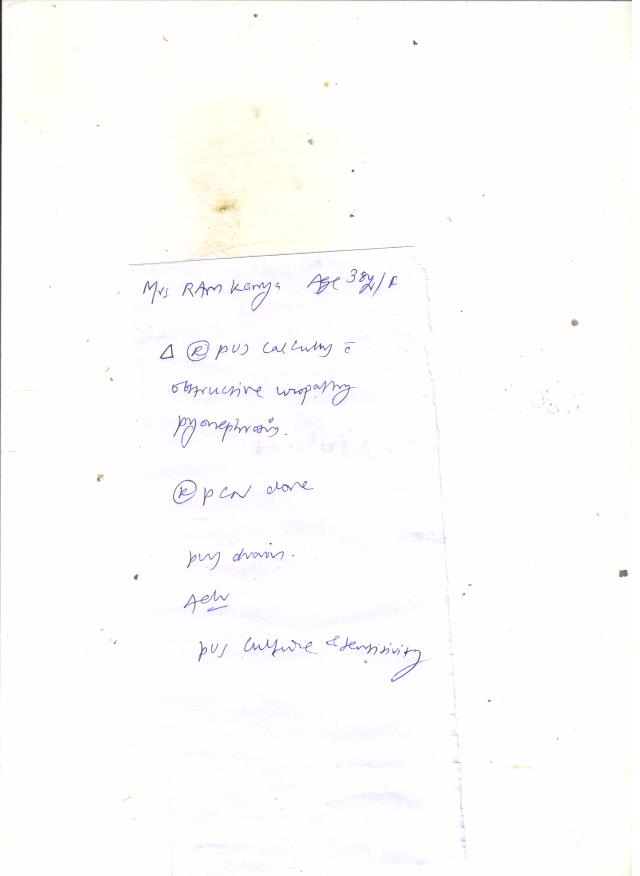 Mrs RAM Kanya Age 38y/F
Δ Ⓡ PUJ calculus c̄
obstructive uropathy
pyonephrosis.
Ⓡ PCN done
pus drain.
Adv
pus culture & sensitivity